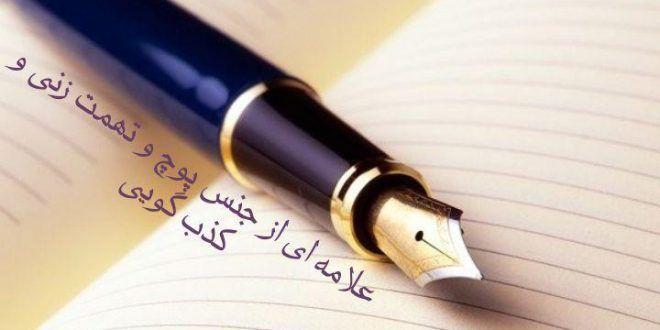 علامه ای از جنس پوچ و تهمت زنی و
کذب گویی